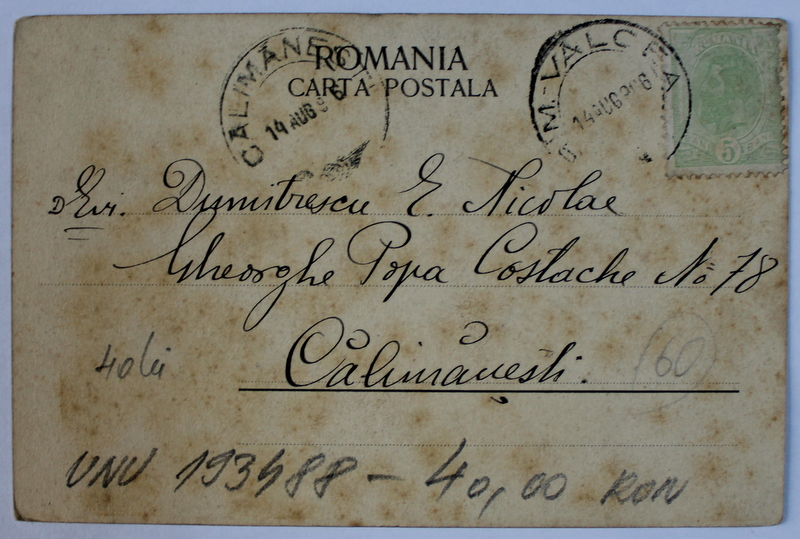 ROMANIA
CARTA POSTALA
CALIMANE
14 AUG 96
RM-VALCEA
14 AUG 96
5
Dumitrescu E. Nicolae
Gheorghe Popa Costache No 78
Călimănești.
40 lei
(60)
VNV 193488 – 40,00 RON